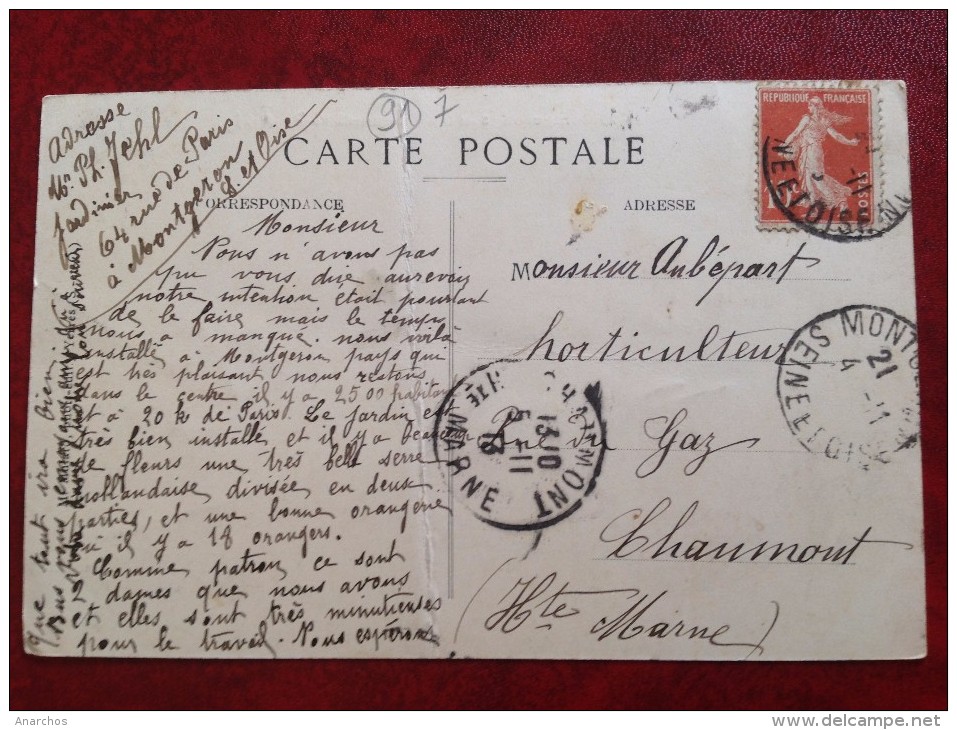 91 7
CARTE POSTALE
Adresse
Mr Ph. Jehl
Jardinier
64 rue de Paris
à Montgeron
S. et Oise
CORRESPONDANCE
ADRESSE
REPUBLIQUE FRANÇAISE
10
POSTES
NE ET OISE
Monsieur
Nous n'avons pas
pu vous dire aurevoir
notre intention était pourtant
de le faire mais le temps
nous a manqué. nous voilà
installé à Montgeron pays qui
est très plaisant nous restons
dans le centre il y a 2500 habitants
et à 20 k de Paris. Le jardin est
très bien installé et il y a beaucoup
de fleurs une très belle serre
hollandaise divisée en deux
parties, et une bonne orangerie
où il y a 18 orangers.
Comme patron ce sont
2 dames que nous avons
et elles sont très minutieuses
pour le travail. Nous espérons
que tout ira bien
Monsieur Aubépart
horticulteur
Rue du Gaz
Chaumont
(Hte Marne)
MONTGERON
21
4 -11
SEINE ET OISE
CHAUMONT
13 10
5 -11
HTE MARNE
Anarchos
www.delcampe.net